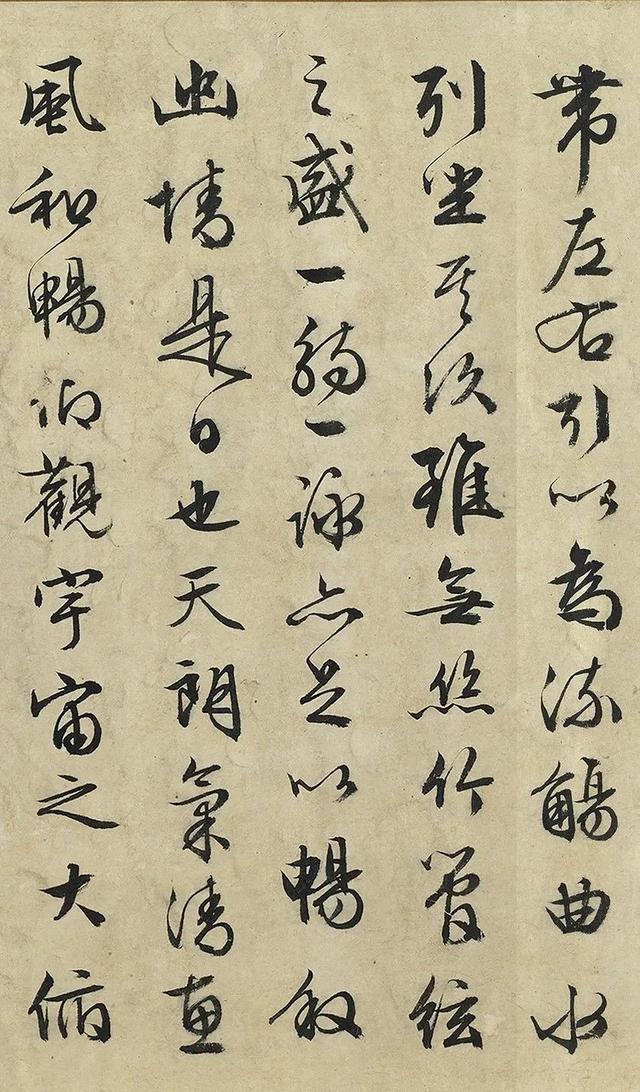 帶左右引以為流觴曲水
列坐其次雖無絲竹管絃
之盛一觴一詠亦足以暢叙
幽情是日也天朗氣清惠
風和暢仰觀宇宙之大俯